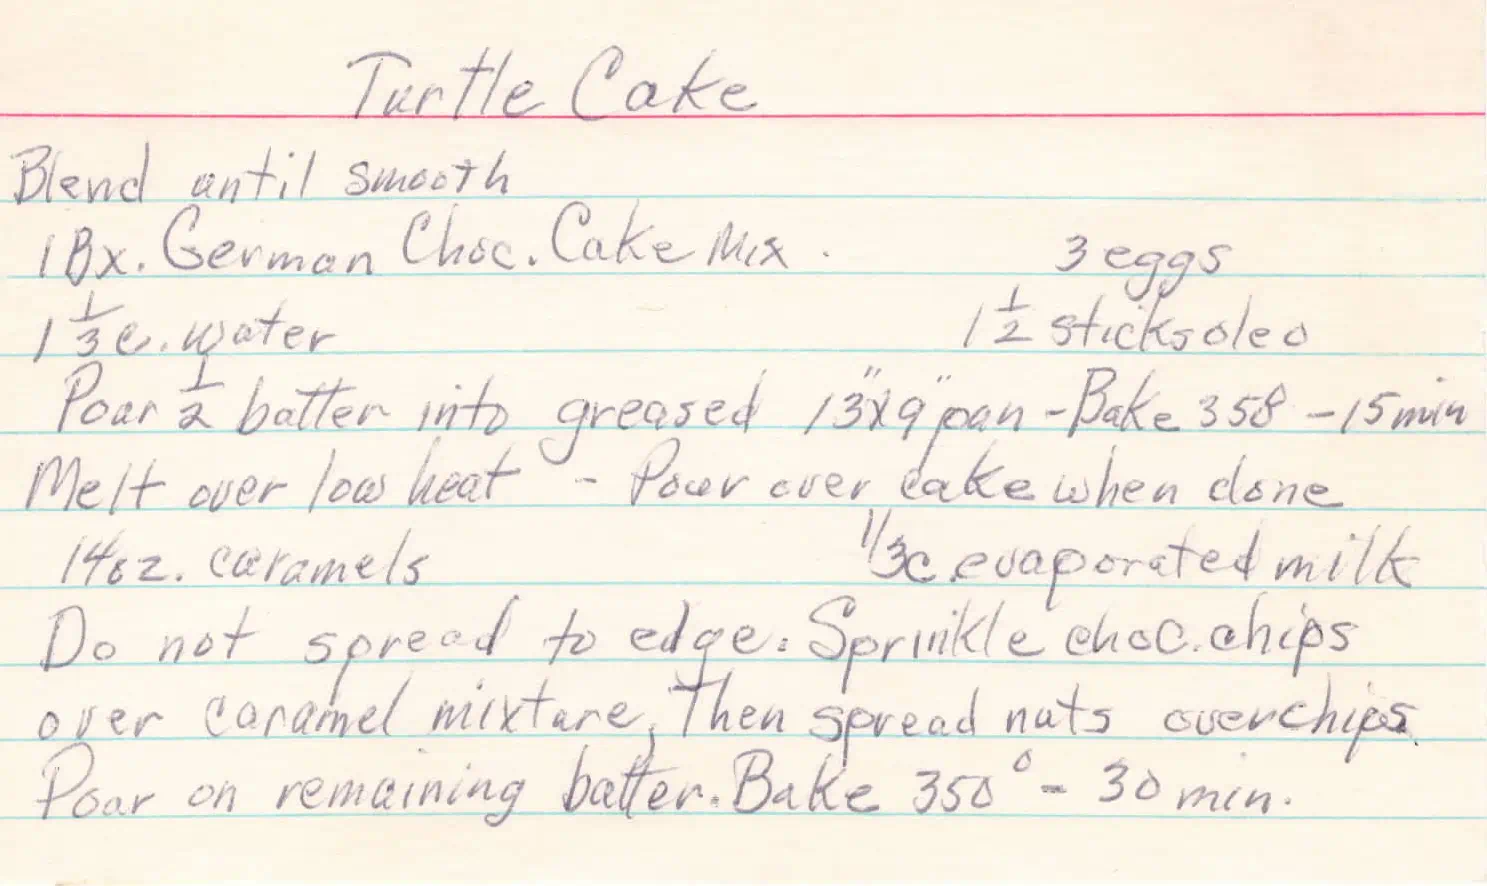 Turtle Cake
Blend until smooth
1 Bx. German Choc. Cake Mix. 3 eggs
1 1/3 c. water 1 1/2 sticks oleo
Pour 1/2 batter into greased 13"x9" pan - Bake 350 - 15 min
Melt over low heat - Pour over cake when done
14oz. caramels 1/3c. evaporated milk
Do not spread to edge. Sprinkle choc. chips
over caramel mixture, Then spread nuts over chips.
Pour on remaining batter. Bake 350° - 30 min.